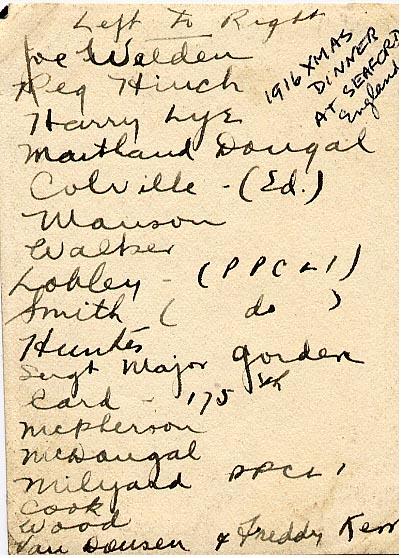 Left To Right
Joe Walden
Reg Hinch
Harry Lye
Maitland Dougal
Colville - (Ed.)
Manson
Walker
Lobley - (PPCLI)
Smith ( do )
Hunter
Sergt Major Gorden
Card - 175th
McPherson
McDougal
Milyard PPCLI
Cook
Wood
Van Dousen & Freddy Kerr
1916 XMAS
DINNER
AT SEAFORD
England